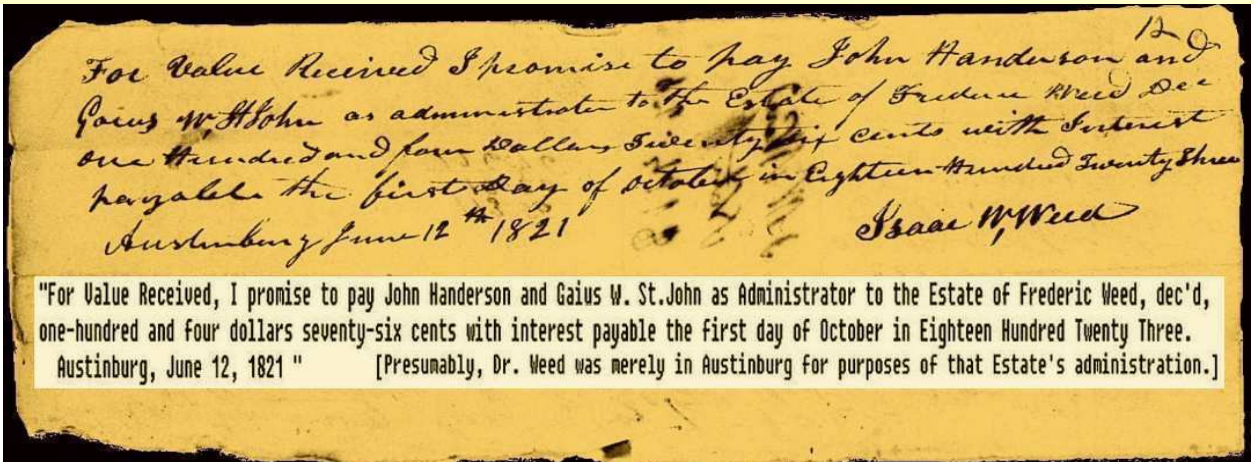 12
For Value Received I promise to pay John Handerson and
Gaius W. St John as administrator to the Estate of Frederic Weed Dec
one Hundred and four Dollars Seventy Six cents with Interest
payable the first Day of October in Eighteen Hundred Twenty Three
Austinburg June 12th 1821
Isaac W, Weed
"For Value Received, I promise to pay John Handerson and Gaius W. St.John as Administrator to the Estate of Frederic Weed, dec'd,
one-hundred and four dollars seventy-six cents with interest payable the first day of October in Eighteen Hundred Twenty Three.
Austinburg, June 12, 1821 " [Presumably, Dr. Weed was merely in Austinburg for purposes of that Estate's administration.]